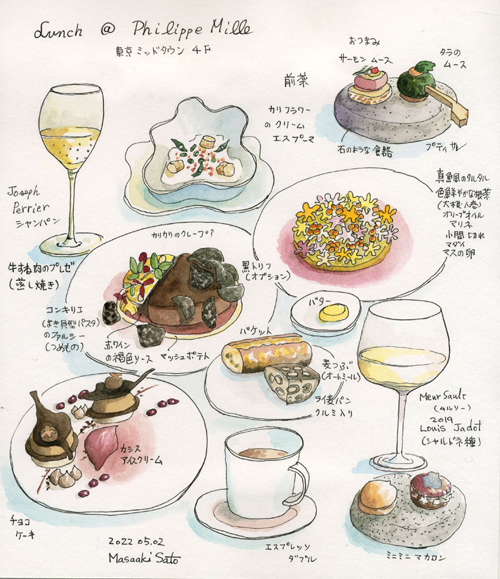 Lunch @ Philippe Mille
東京ミッドタウン 4F
おつまみ
サーモン ムース
タラの
ムース
前菜
カリフラワー
の クリーム
エスプーマ
石のような食器
プティ サレ
Joseph
Perrier
シャンパン
真鯛のタルタル
色鮮やかな根菜
(大根・人参)
オリーブオイル
マリネ
小間切れ
マダイ
マスの卵
牛ほほ肉のブレゼ
(蒸し焼き)
カリカリのクレープ?
黒トリフ
(オプション)
コンキリエ
(よき貝型パスタ)
のファルシー
(つめもの)
赤ワイン
の褐色ソース
マッシュポテト
バター
バケット
麦つぶ
(オートミール)
ライ麦パン
クルミ入り
Meursault
(ムルソー)
2019
Louis Jadot
(シャルドネ種)
カシス
アイスクリーム
チョコ
ケーキ
2022 05.02
Masaaki Sato
エスプレッソ
ダブル
ミニミニ マカロン